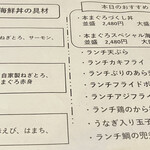 海鮮丼の具材
ねぎとろ、サーモン、
自家製ねぎとろ、
本まぐろ赤身
えび、はまち、
本日のおすすめ
本まぐろづくし丼
並盛 2,480円 大盛
本まぐろスペシャル海
並盛 2,480円 大盛
・ランチ天ぷら
・ランチカキフライ
・ランチぶりのあら
・ランチホッケフライ
・ランチアジフライ
・ランチ鶏のから
・うなぎ入り玉子
・ランチ鯛の兜